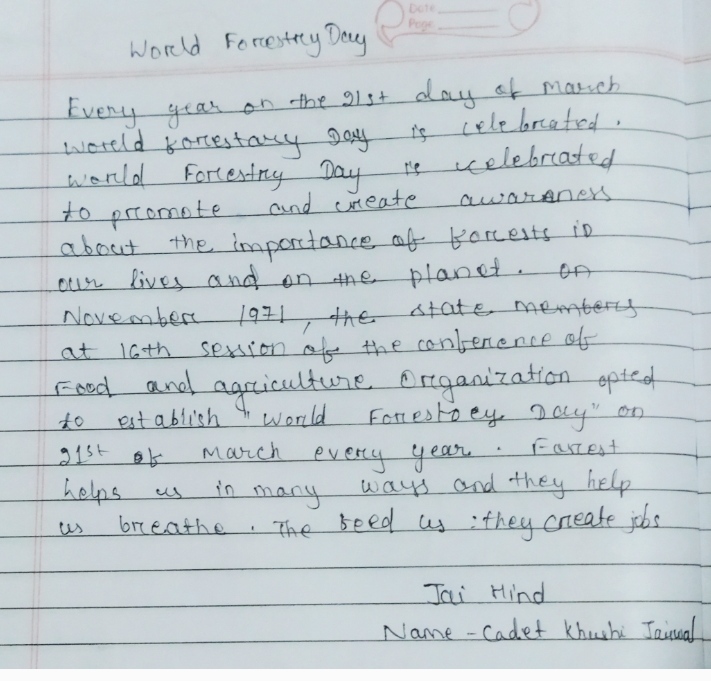 Date
Page
World Forestry Day
Every year on the 21st day of March
World Forestary Day is celebrated.
World Forestry Day is celebrated
to promote and create awareness
about the importance of forests in
our lives and on the planet. on
November 1971, the state members
at 16th session of the conference of
Food and agriculture Organization opted
to establish "World Forestoey Day" on
21st of March every year. Forest
helps us in many ways and they help
us breathe. The feed us : they create jobs
Jai Hind
Name - Cadet Khushi Jaiswal